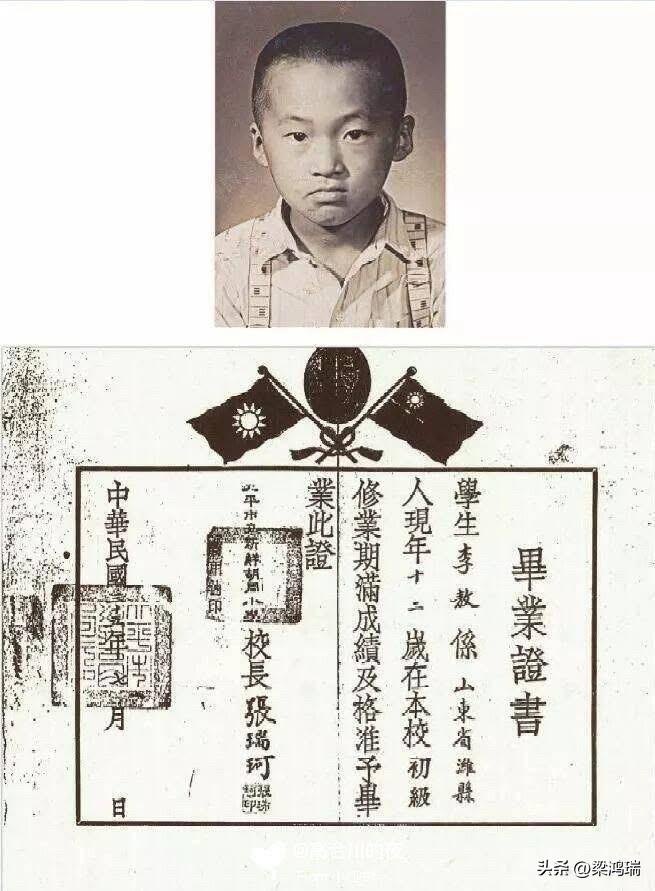 畢業證書
學生李敖係山東省濰縣
人現年十二歲在本校初級
修業期滿成績及格准予畢
業此證
平市立新鮮胡同小學校長張瑞珂
中華民國三十五年七月 日
头条 @梁鸿瑞